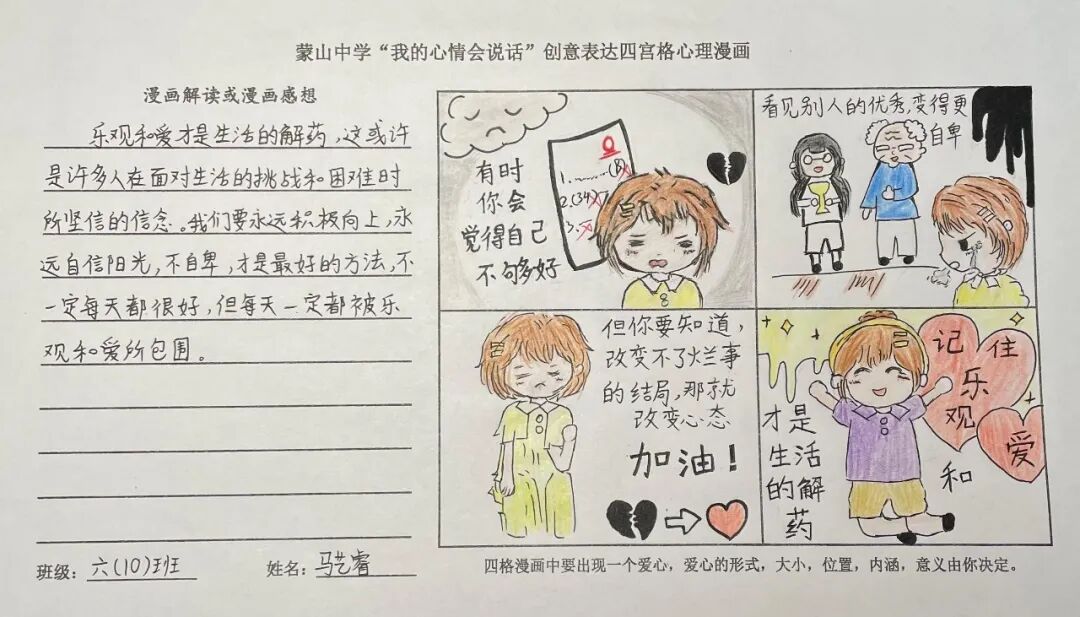 蒙山中学“我的心情会说话”创意表达四宫格心理漫画
漫画解读或漫画感想
乐观和爱才是生活的解药，这或许
是许多人在面对生活的挑战和困难时
所坚信的信念。我们要永远积极向上，永
远自信阳光，不自卑，才是最好的方法，不
一定每天都很好，但每天一定都被乐
观和爱所包围。
班级：六(10)班
姓名：马艺睿
有时
你会
觉得自己
不够好
1.
2.
3.
看见别人的优秀，变得更
自卑
但你要知道，
改变不了烂事
的结局，那就
改变心态
加油！
记住
乐观
和
爱
才是
生活
的解
药
四格漫画中要出现一个爱心，爱心的形式，大小，位置，内涵，意义由你决定。